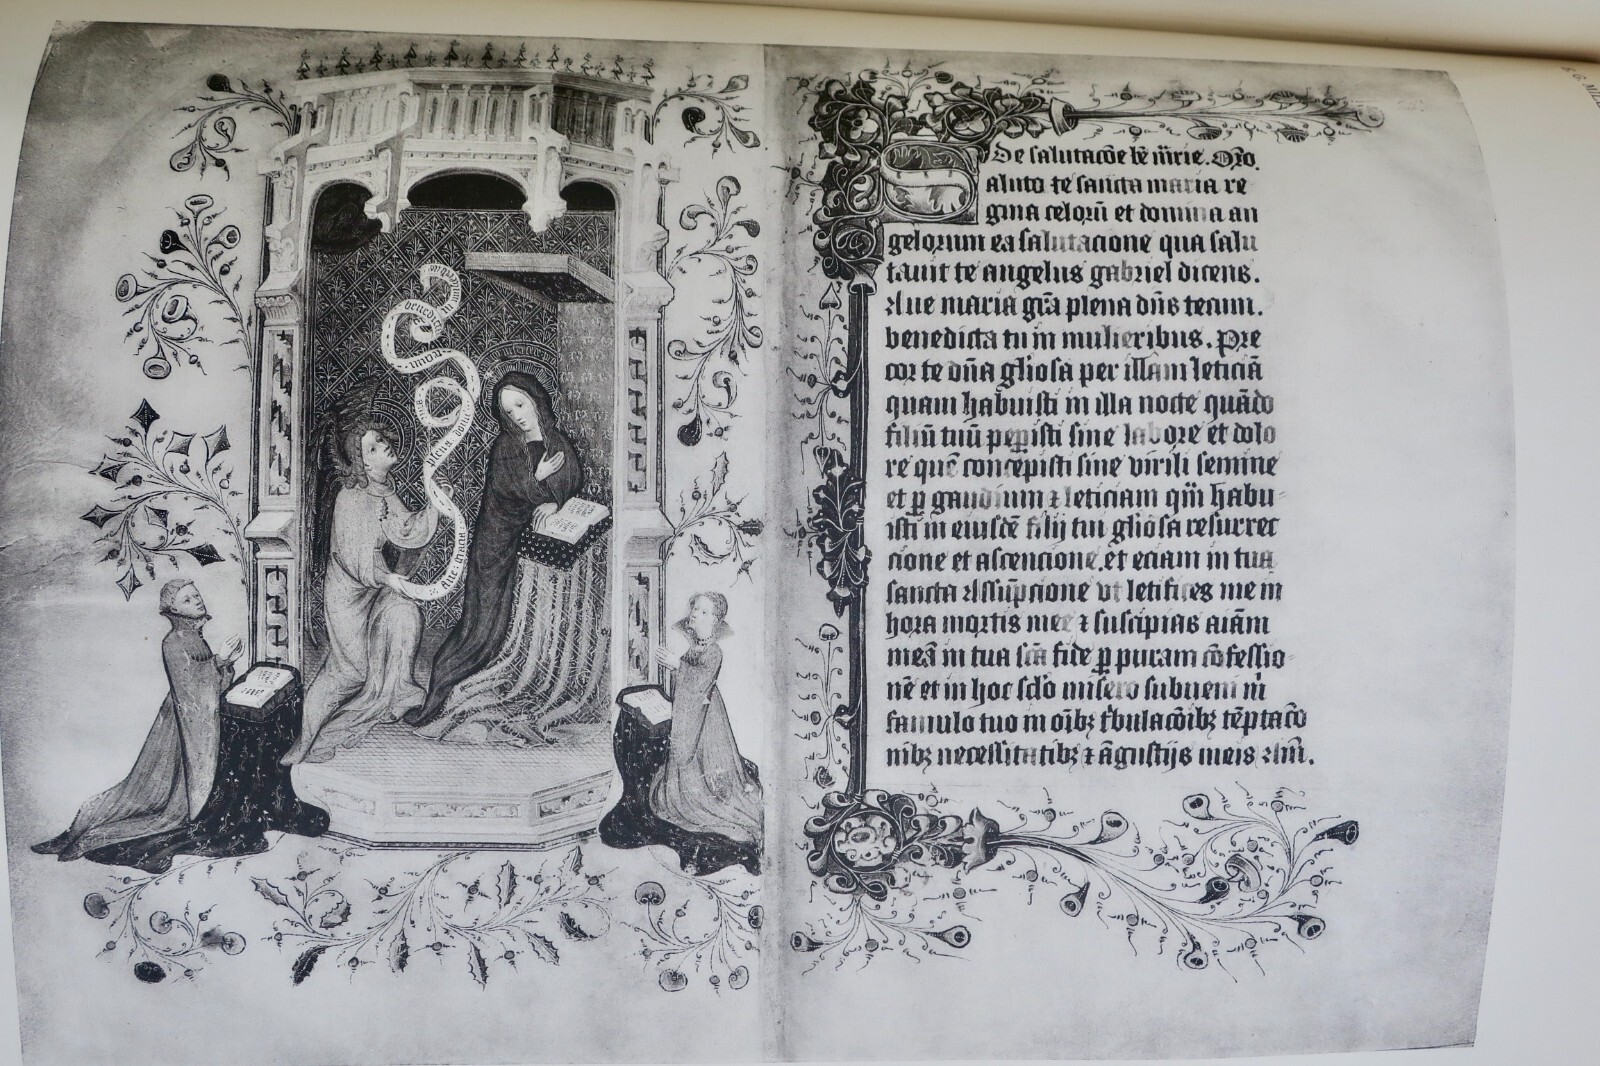 Aue maria
plena
benedicta
in
De salutacōe bē m̄rie. Oro.
Saluto te sancta maria re
gina celorū et domina an
gelorum ea salutacione qua salu
tauit te angelus gabriel dicens.
Aue maria grā plena dn̄s tecum.
benedicta tu in mulieribus. Pre
cor te dn̄a gliosa per illam leticiā
quam habuisti in illa nocte quādo
filiū tuū peperisti sine labore et dolo
re quē concepisti sine virili semine
et ꝑ gaudium ⁊ leticiam qm̄ habu
isti in eiusdē filij tui gliosa resurrec
cione et ascencione. et eciam in tua
sancta Assūpcione vt letifices me in
hora mortis mee ⁊ suscipias aiām
meā in tua scā fide ꝑ puram cōfessio
nē et in hoc sclo misero subueni m
famulo tuo in oībꝫ tbulacōibꝫ tēptaco
nibꝫ necessitatibꝫ ⁊ āgustijs meis Am̄.